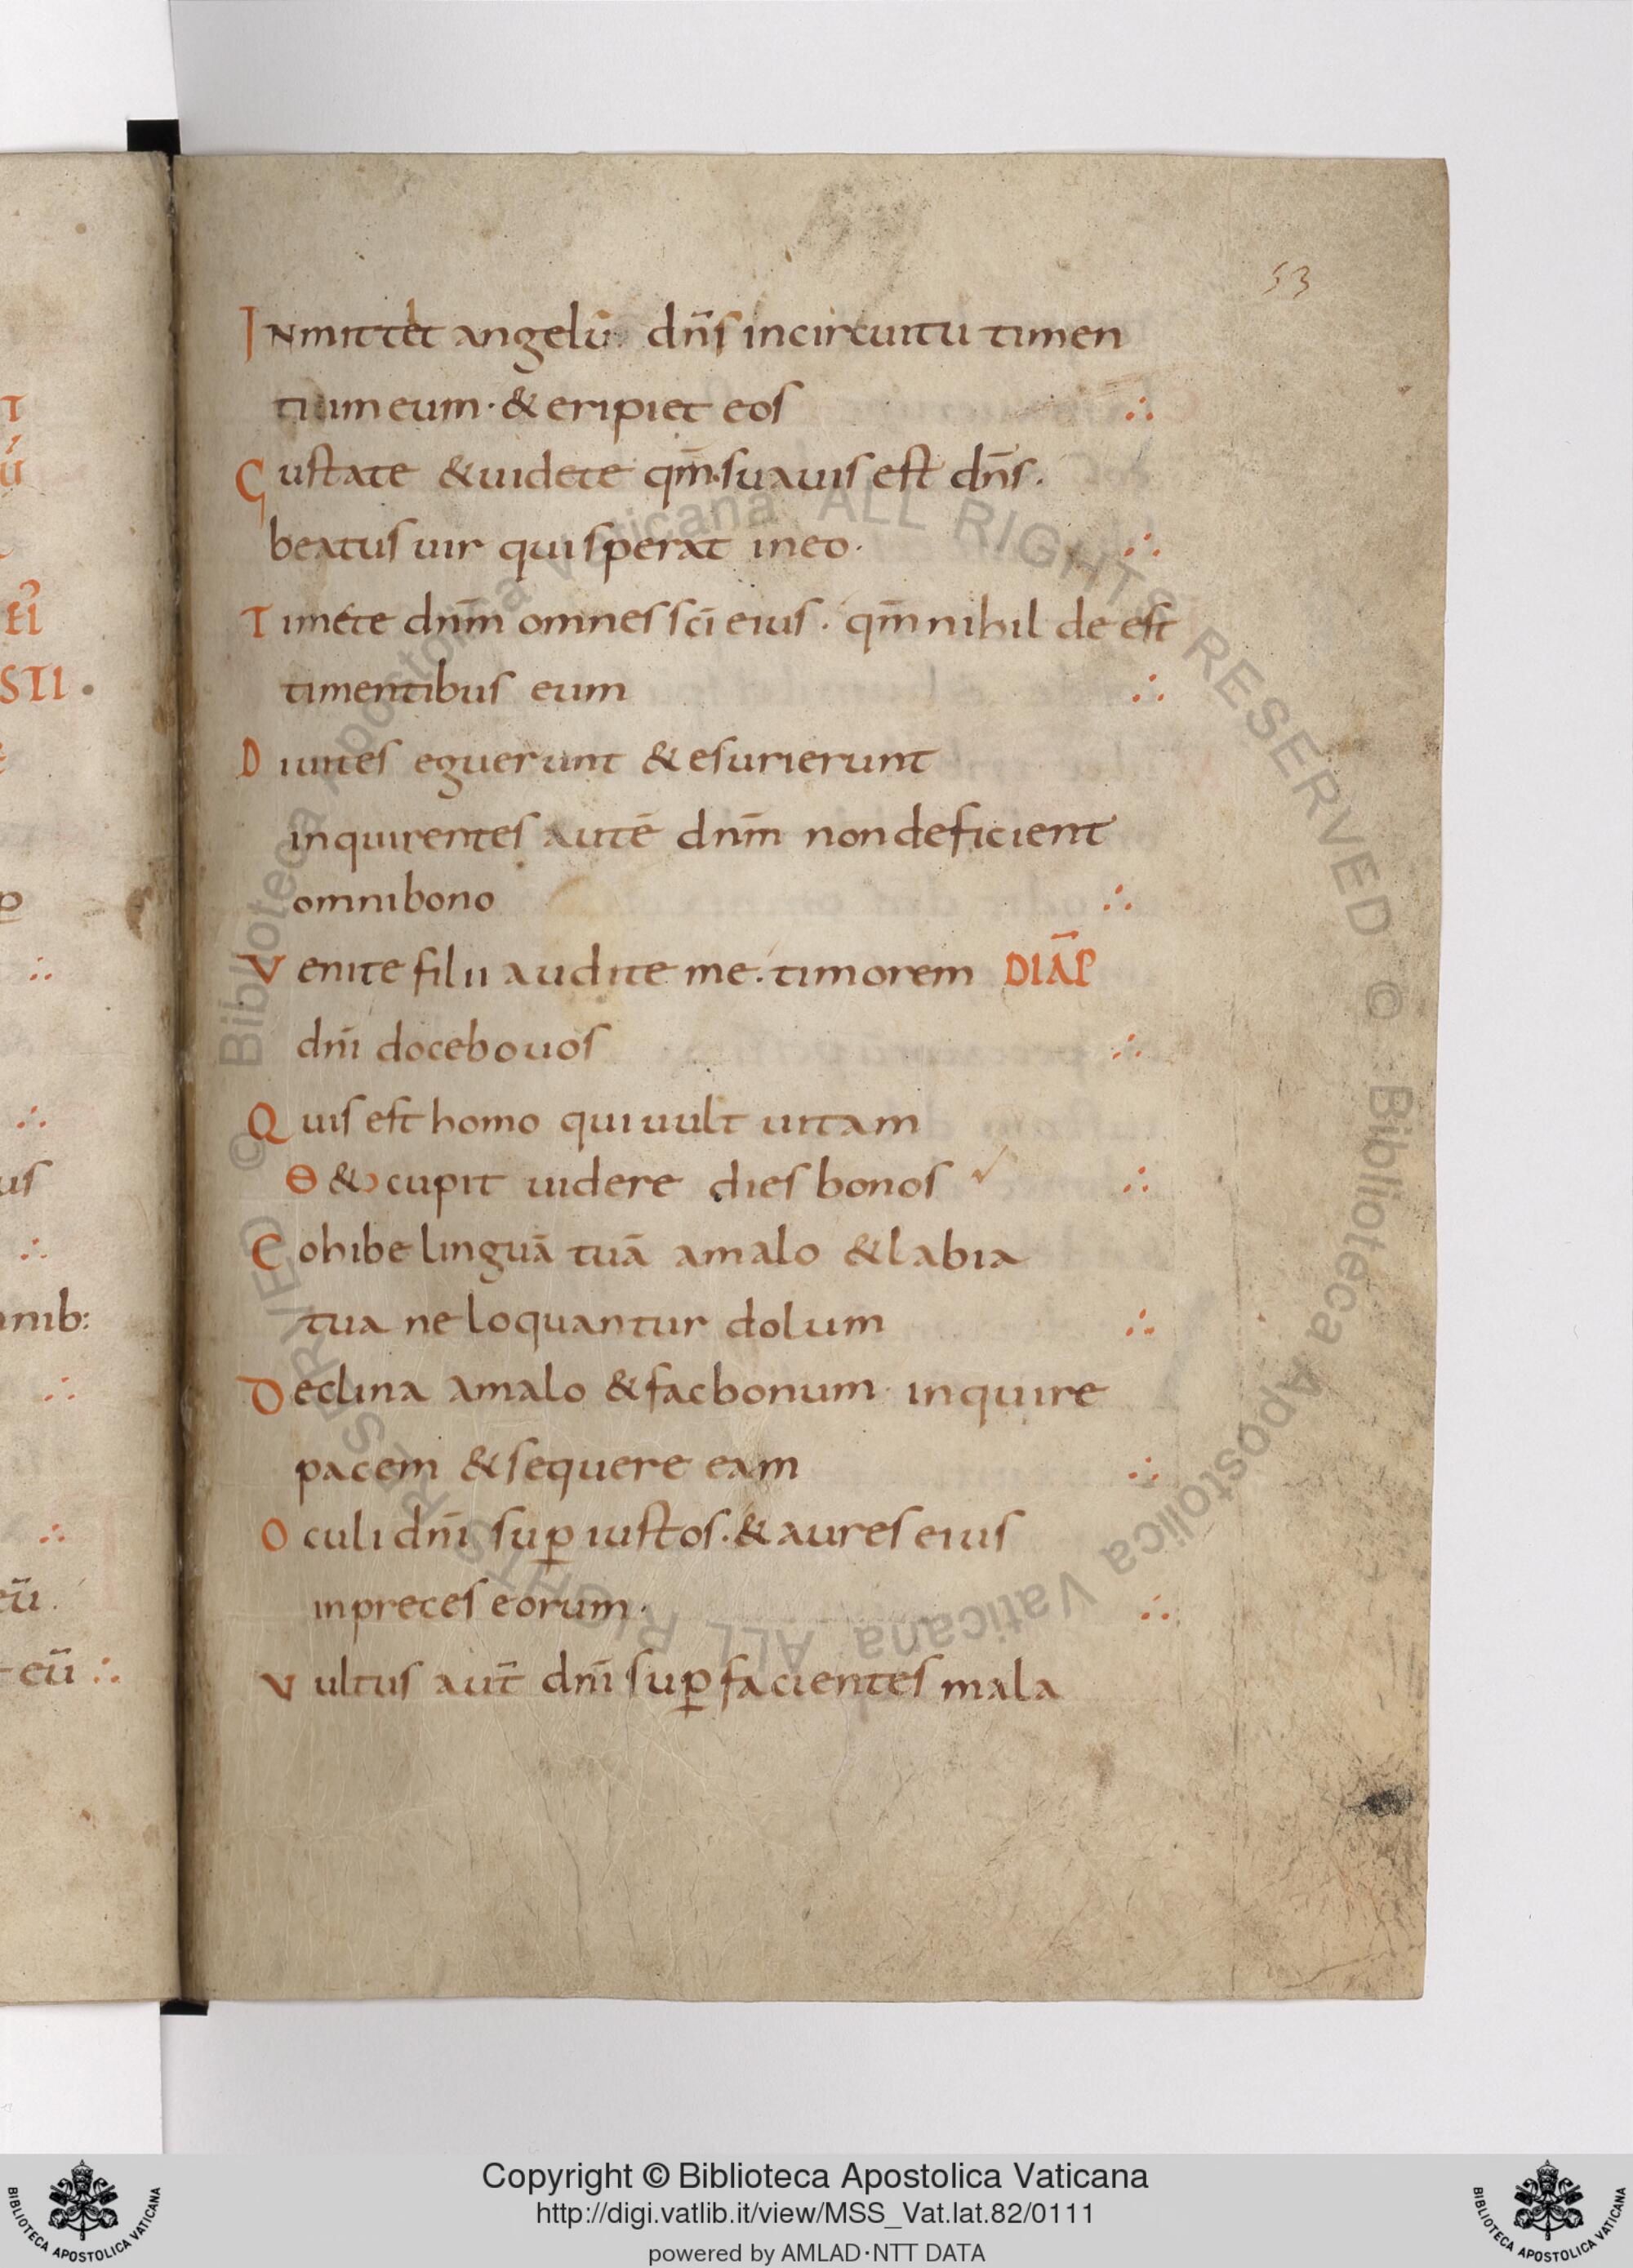 53
INmittet angelū dn̄s incircuitu timen
tium eum· & eripiet eos ∴
Gustate & uidete qm̄ suauis est dn̄s.
beatus uir qui sperat ineo· ∴
Timete dnm̄ omnes sc̄i eius· qm̄ nihil de est
timentibus eum ∴
Diuites eguerunt & esurierunt
inquirentes autē dnm̄ non deficient
omni bono ∴
Venite filii audite me. timorem DIAP̄
dnī docebo uos ∴
Quis est homo qui uult uitam
& cupit uidere dies bonos ∴
Cohibe linguā tuā amalo & labia
tua ne loquantur dolum ∴
Declina amalo & fac bonum· inquire
pacem & sequere eam ∴
Oculi dnī sup̱ iustos· & aures eius
in preces eorum· ∴
Vultus aut̄ dnī sup̱ facientes mala
T
ū
EI
STI·
p
∴
∴
us
∴
nib:
∴
∴
eū.
eū ∴
© Biblioteca Apostolica Vaticana ALL RIGHTS RESERVED © Biblioteca Apostolica Vaticana ALL RIGHTS RESERVED
Copyright © Biblioteca Apostolica Vaticana
http://digi.vatlib.it/view/MSS_Vat.lat.82/0111
powered by AMLAD·NTT DATA
BIBLIOTECA APOSTOLICA VATICANA
BIBLIOTECA APOSTOLICA VATICANA